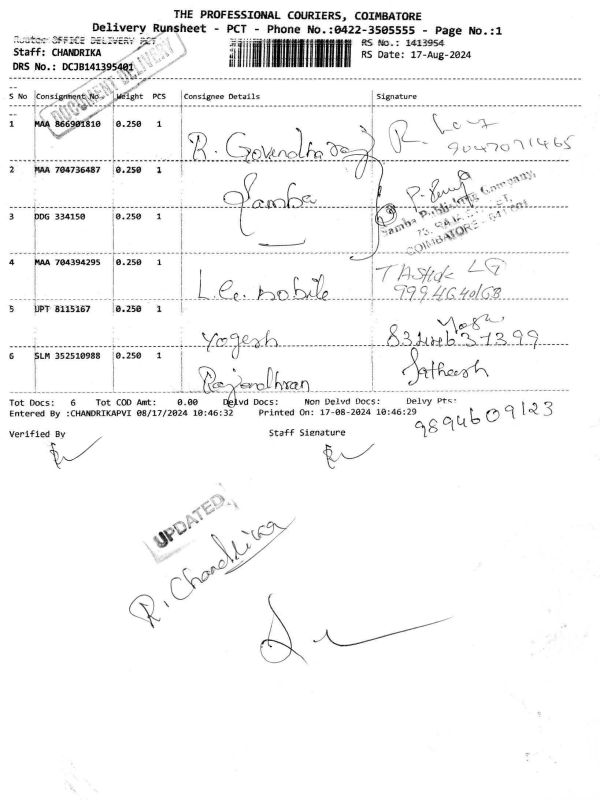 THE PROFESSIONAL COURIERS, COIMBATORE
Delivery Runsheet - PCT - Phone No.:0422-3505555 - Page No.:1
Route: OFFICE DELIVERY PCT
RS No.: 1413954
Staff: CHANDRIKA
RS Date: 17-Aug-2024
DRS No.: DCJB141395401
DOCUMENT DELIVERY
S No Consignment No. Weight PCS Consignee Details Signature
1 MAA 866901810 0.250 1 R. Govendharaj R.
9047071465
2 MAA 704736487 0.250 1 Samba
Samba Publishing Company,
COIMBATORE - 641 001
3 DDG 334150 0.250 1
4 MAA 704394295 0.250 1 L.G. mobile LG
9994640168
5 UPT 8115167 0.250 1 Yogesh
6 SLM 352510988 0.250 1 Rajendhran Satheesh
Tot Docs: 6 Tot COD Amt: 0.00 Delvd Docs: Non Delvd Docs: Delvy Pts:
Entered By :CHANDRIKAPVI 08/17/2024 10:46:32 Printed On: 17-08-2024 10:46:29
9894609123
Verified By Staff Signature
UPDATED
R. Chandrika